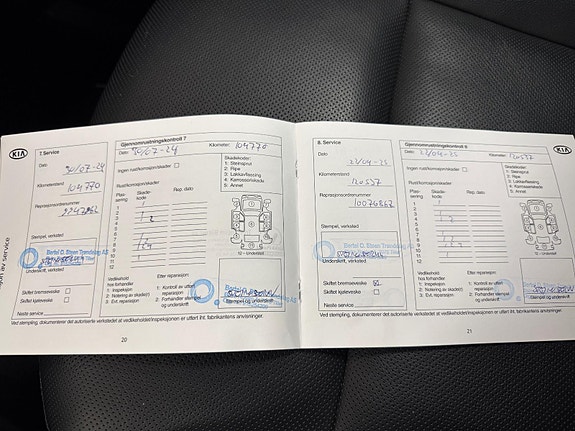 KIA
7. Service
Dato
30/07-24
Kilometerstand
104770
Reparasjonsordrenummer
Stempel, verksted
Bertel O. Steen Trøndelag AS
Underskrift, verksted
Skiftet bremsevæske
Skiftet kjølevæske
Neste service
Gjennomrustningskontroll 7
Dato: 30/07-24
Kilometer: 104770
Ingen rust/korrosjon/skader
Rust/korrosjon/skader
Plassering
Skadekode
Rep. dato
1
2
3
4
5
6
7
8
9
10
11
12
Skadekoder:
1: Steinsprut
2: Ripe
3: Lakkavflassing
4: Karosseriskade
5: Annet
12 - Understell
Vedlikehold hos forhandler
1: Inspeksjon
2: Notering av skade(r)
3: Evt. reparasjon
Etter reparasjon:
1: Kontroll av utført reparasjon
2: Forhandler stempler
Stempel og underskrift
Ved stempling, dokumenterer det autoriserte verkstedet at vedlikeholdet/inspeksjonen er utført iht. fabrikantens anvisninger.
20
8. Service
Dato
23/04-25
Kilometerstand
120537
Reparasjonsordrenummer
10076862
Stempel, verksted
Bertel O. Steen Trøndelag AS
Underskrift, verksted
Skiftet bremsevæske
Skiftet kjølevæske
Neste service
Gjennomrustningskontroll 8
Dato: 23/04-25
Kilometer: 120537
Ingen rust/korrosjon/skader
Rust/korrosjon/skader
Plassering
Skadekode
Rep. dato
1
2
3
4
5
6
7
8
9
10
11
12
Skadekoder:
1: Steinsprut
2: Ripe
3: Lakkavflassing
4: Karosseriskade
5: Annet
12 - Understell
Vedlikehold hos forhandler
1: Inspeksjon
2: Notering av skade(r)
3: Evt. reparasjon
Etter reparasjon:
1: Kontroll av utført reparasjon
2: Forhandler stempler
Stempel og underskrift
Ved stempling, dokumenterer det autoriserte verkstedet at vedlikeholdet/inspeksjonen er utført iht. fabrikantens anvisninger.
21
KIA